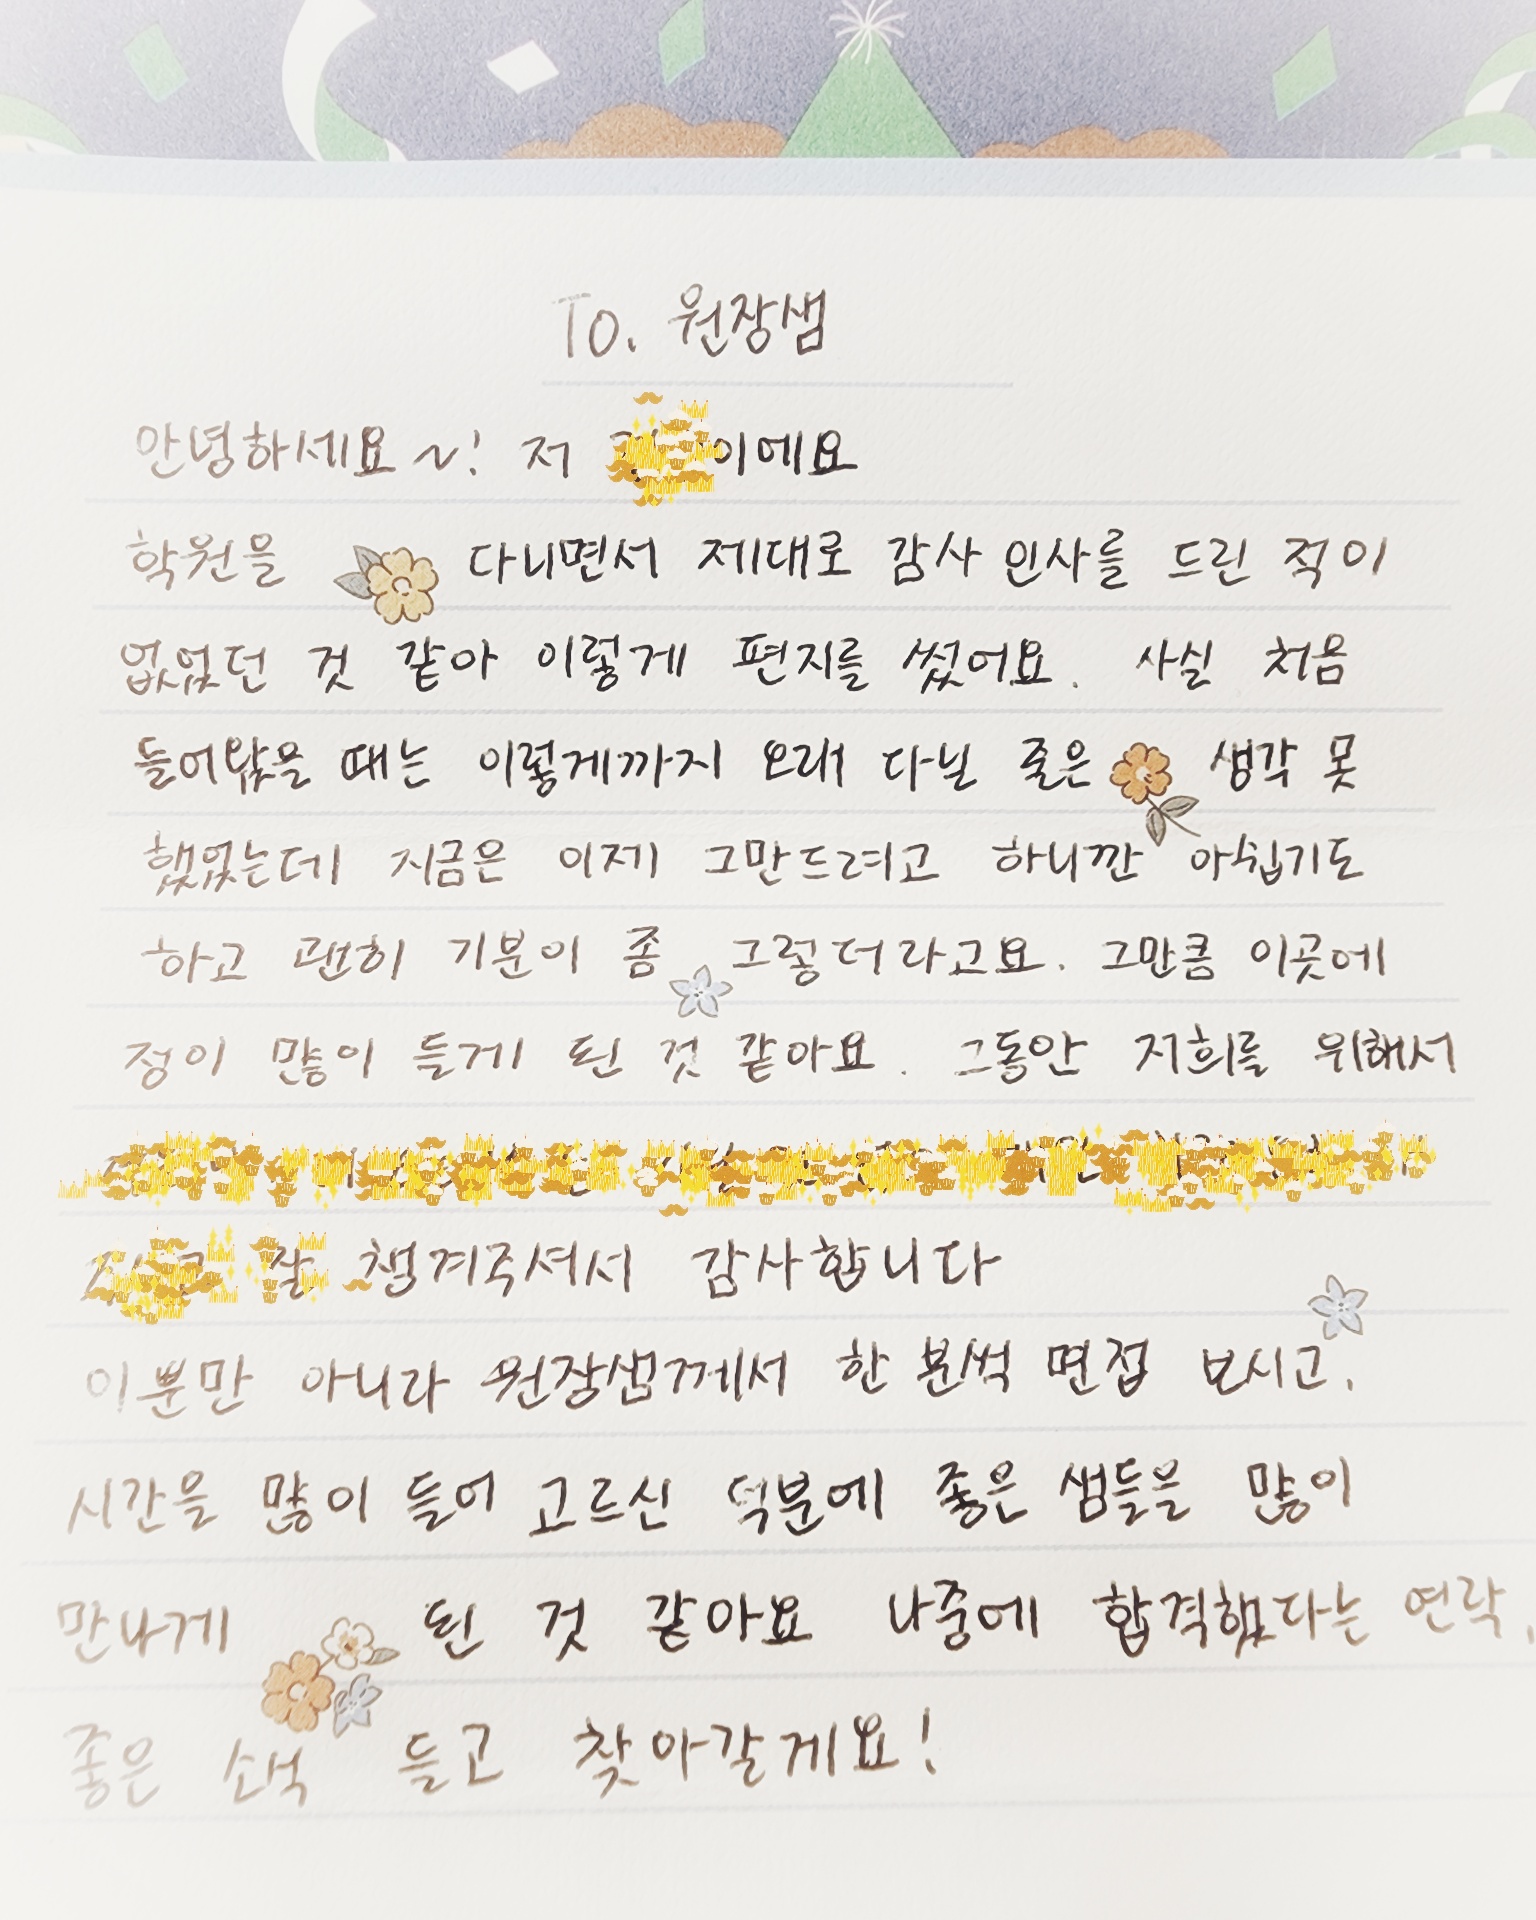 To. 원장샘
안녕하세요~! 저 이에요
학원을 다니면서 제대로 감사 인사를 드린 적이
없었던 것 같아 이렇게 편지를 썼어요. 사실 처음
들어왔을 때는 이렇게까지 오래 다닐 줄은 생각 못
했었는데 지금은 이제 그만드려고 하니깐 아쉽기도
하고 괜히 기분이 좀 그렇더라고요. 그만큼 이곳에
정이 많이 들게 된 것 같아요. 그동안 저희를 위해서
잘 챙겨주셔서 감사합니다
이뿐만 아니라 원장샘께서 한 분씩 면접 보시고,
시간을 많이 들어 고르신 덕분에 좋은 샘들을 많이
만나게 된 것 같아요 나중에 합격했다는 연락,
좋은 소식 들고 찾아갈게요!